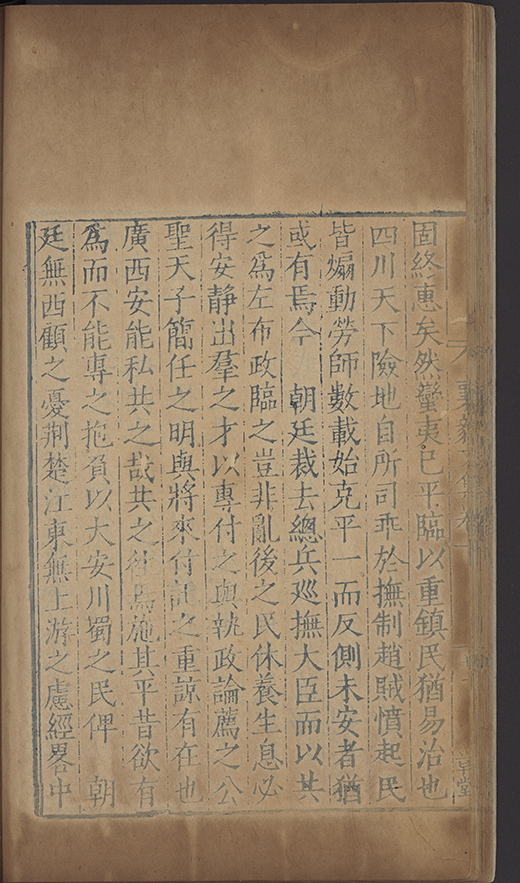 固終惠矣然蠻夷已平臨以重鎮民猶易治也
四川天下險地自所司乖於撫制趙賊憤起民
皆煽動勞師數載始克平一而反側未安者猶
或有焉今　朝廷裁去總兵巡撫大臣而以共
之爲左布政臨之豈非亂後之民休養生息必
得安靜出羣之才以專付之與執政論薦之公
聖天子簡任之明與將來付託之重諒有在也
廣西安能私共之哉共之往焉施其平昔欲有
爲而不能專之抱負以大安川蜀之民俾　朝
廷無西顧之憂荆楚江東無上游之慮經畧中